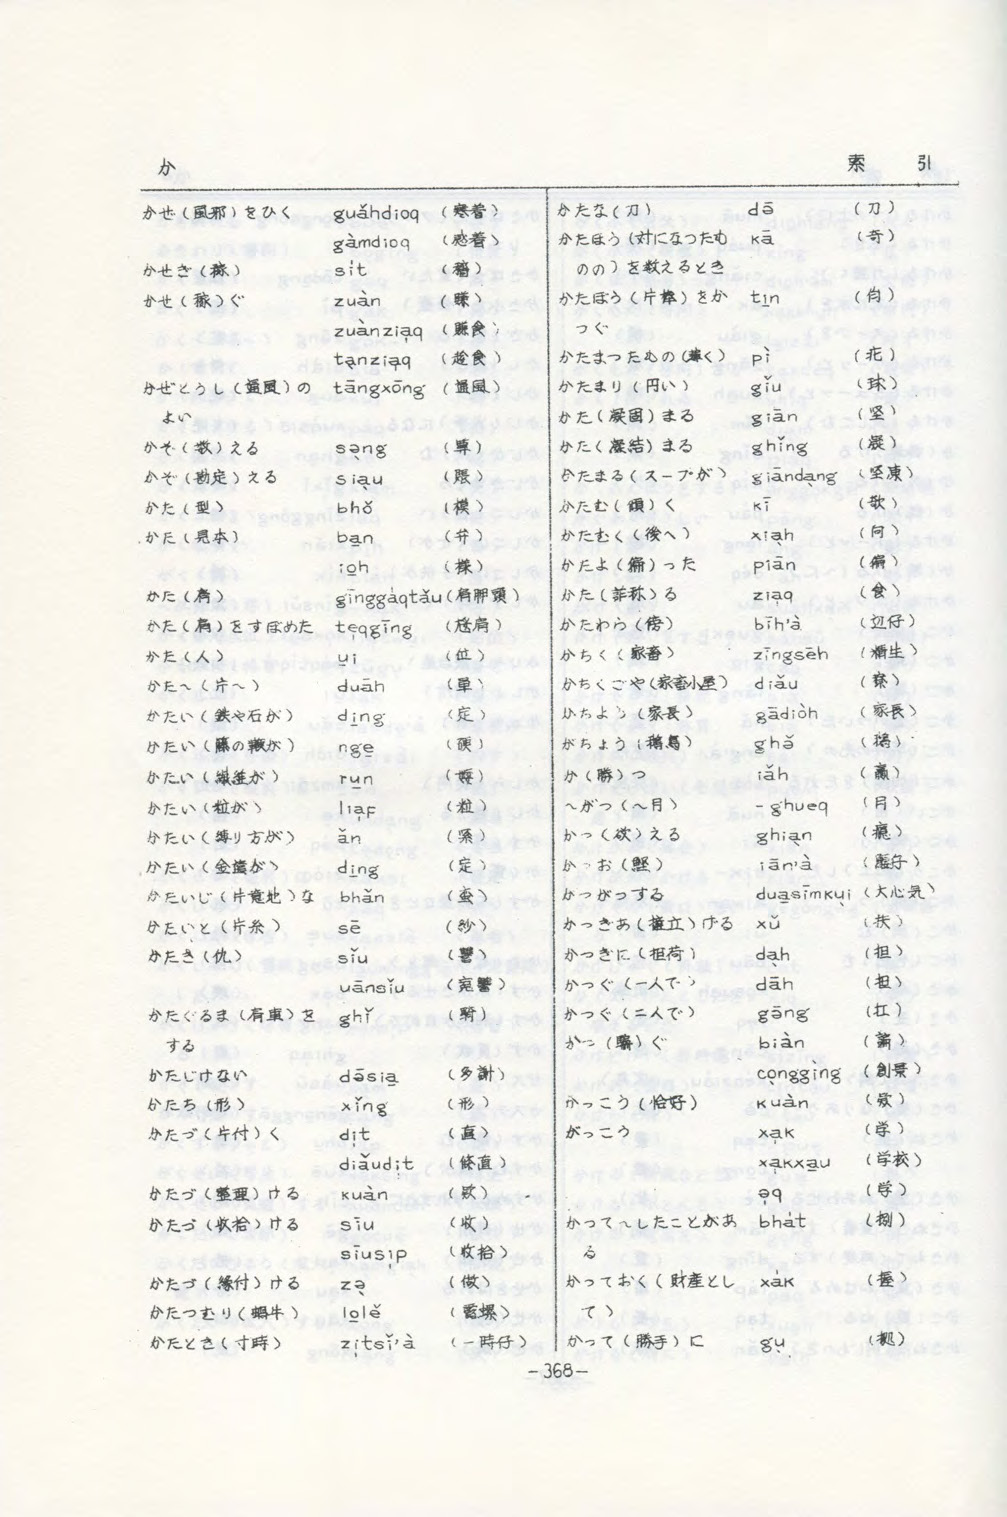 か
索 引
かぜ(風邪)をひく guǎhdioq (寒着)
gàmdioq (感着)
かせぎ(稼) sit (穡)
かせ(稼)ぐ zuàn (賺)
zuànziạq (賺食)
tạnziạq (趁食)
かぜとうし(通風)の tāngxōng (通風)
よい
かぞ(数)える
かぞ(勘定)える siạu (賬)
かた(型) bhǒ (模)
かた(見本)
ioh (様)
かた(肩) gīnggàqtǎu (肩胛頭)
かた(肩)をすぼめた teqgīng
かた(人) ui (位)
かた~(片~) duāh (単)
かたい(鉄や石が) ding (定)
かたい nge (硬)
かたい run
かたい(粒が) liap (粒)
かたい(縛り方が) ǎn
かたい ding (定)
かたいじ(片意地)な bhǎn (蛮)
かたいと(片糸) sē (紗)
かたき(仇) sǐu (讐)
uānsǐu (寃讐)
かたぐるま(肩車)を ghǐ (騎)
する
かたじけない dōsiạ (多謝)
かたち(形) xǐng (形)
かたづ(片付)く dịt (直)
diǎudịt (條直)
かたづ(整理)ける kuàn (欵)
かたづ(収拾)ける sīu (收)
sīusịp (收拾)
かたづ(縁付)ける (做)
かたつむり(蝸牛) lolě (露螺)
かたとき(寸時) zịtsǐ'à (一時仔)
かたな(刀) (刀)
かたほう(対になつたも kā (奇)
のの)を数えるとき
かたぼう(片棒)をか tin
つぐ
かたまつたもの pì (疕)
かたまり(円い) gǐu (球)
かた(凝固)まる giān (堅)
かた(凝結)まる ghǐng (凝)
かたまる(スープが) giāndạng (堅凍)
かたむ(傾)く kī (欹)
かたむく(後へ) xiah (向)
かたよ(偏)った piān (偏)
かた(詳称)る ziaq (食)
かたわら(傍) bīh'à (辺仔)
かちく(家畜) zīngsēh
かちくごや(家畜小屋) diǎu (寮)
かちよう(家長) gādiòh (家長)
がちょう(鵝鳥) (鵝)
か(勝)つ iǎh (贏)
~がつ(~月) -ghueq (月)
かつ(欲)える ghian (癮)
かつお(鰹) iān'à
がつがつする (大心気)
かつぎあ(擁立)ける xǔ (扶)
かつぎに(担荷) dạh (担)
かつぐ(一人で) dāh (担)
かつぐ(二人で) (扛)
かつ(騙)ぐ biàn (諞)
conggịng (創景)
かっこう(恰好) kuàn (欵)
がっこう xạk (学)
xạkxạu (学校)
(学)
かって~したことがあ bhat (捌)
る
かっておく(財産とし xak (握)
て)
かって(勝手)に (拠)
-368-